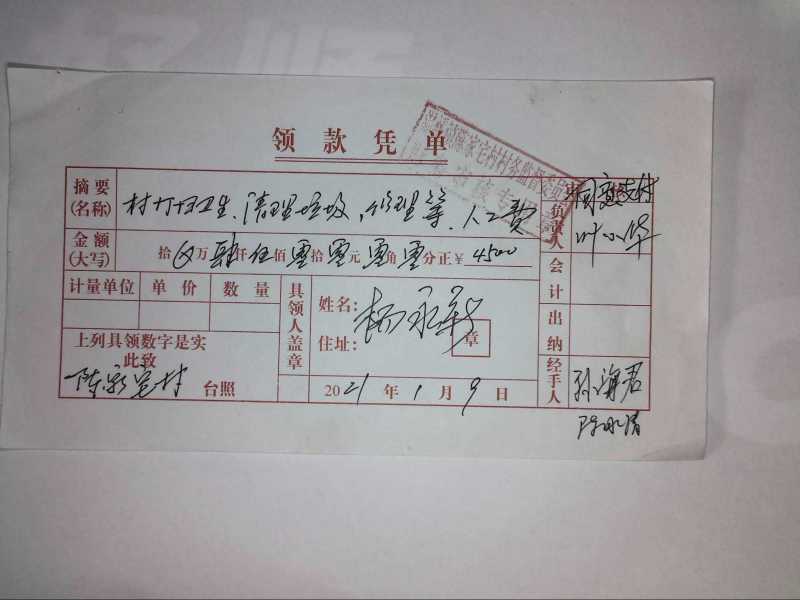 领款凭单
摘要
(名称)
村打扫卫生、清理垃圾、修理等、人工费
金额
(大写)
拾 万肆仟伍佰零拾零元零角零分正¥4500
计量单位 单价 数量
上列具领数字是实
此致
陈家宅村 台照
具领人盖章
姓名:
杨永
住址:
章
2021年1月9日
负责人
同意支付
叶小华
会计
出纳
经手人
孙海君
陈家宅村村务监督委员